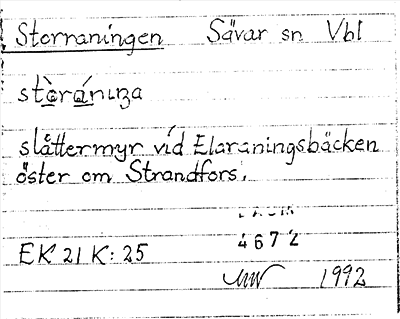 Storraningen Sävar sn Vbl
slåttermyr vid Elaraningsbäcken
öster om Strandfors.
EK 21 K: 25
4672
1992